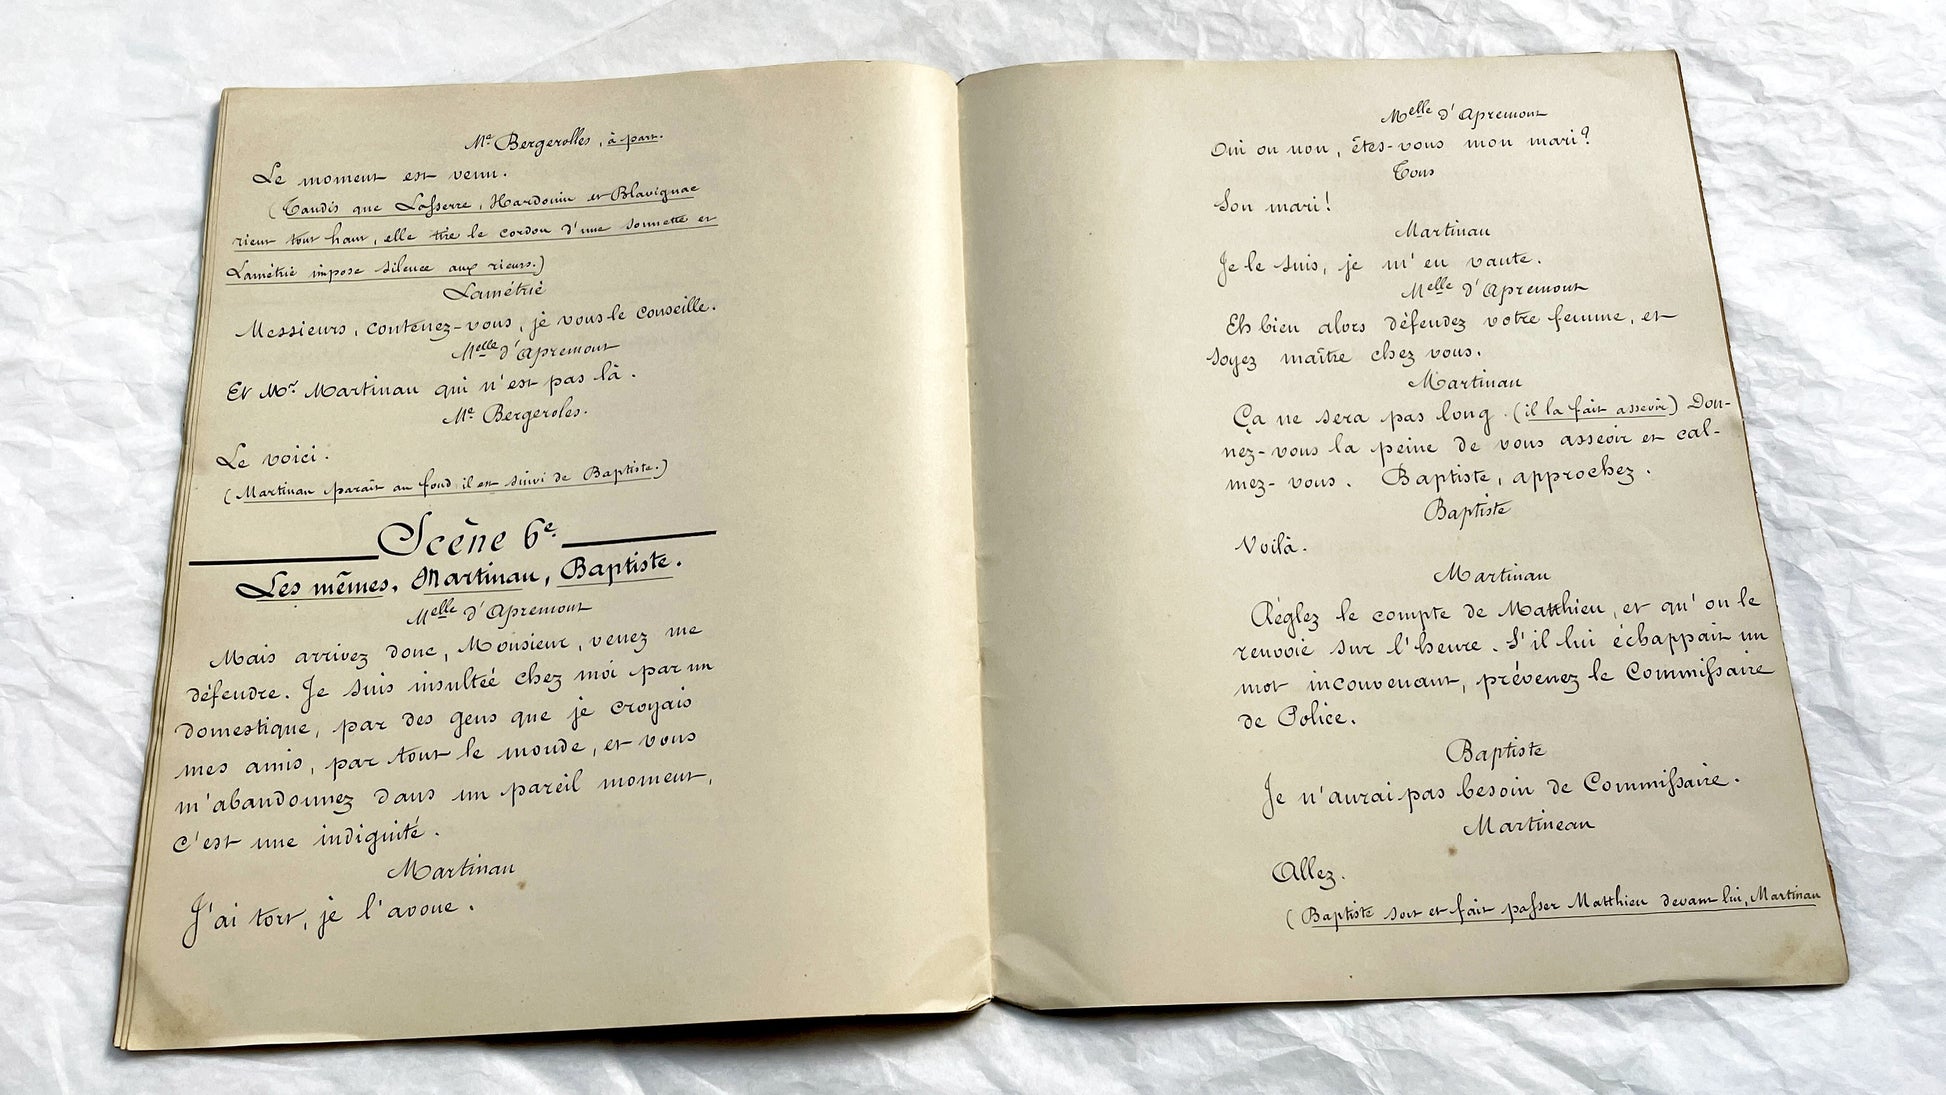 Me Bergerolles, à part.
Le moment est venu.
(Tandis que Lasserre, Hardouin et Blavignac
rient tout haut, elle tire le cordon d'une sonnette et
Lamétrie impose silence aux rieurs.)
Lamétrié
Messieurs, contenez-vous, je vous le conseille.
Melle d'Apremont
Et Mr Martinau qui n'est pas là.
Me Bergeroles.
Le voici.
(Martinau paraît au fond il est suivi de Baptiste.)
Scène 6e.
Les mêmes, Martinau, Baptiste.
Melle d'Apremont
Mais arrivez donc, Monsieur, venez me
défendre. Je suis insulteé chez moi par un
domestique, par des gens que je croyais
mes amis, par tout le monde, et vous
m'abandonnez dans un pareil moment,
c'est une indignité.
Martinau
J'ai tort, je l'avoue.
Melle d'Apremont
Oui ou non, êtes-vous mon mari?
Tous
Son mari!
Martinau
Je le suis, je m'en vante.
Melle d'Apremont
Eh bien alors défendez votre femme, et
soyez maître chez vous.
Martinau
Ça ne sera pas long. (il la fait asseoir) Don-
nez-vous la peine de vous asseoir et cal-
mez-vous. Baptiste, approchez.
Baptiste
Voilà.
Martinau
Réglez le compte de Matthieu, et qu'on le
renvoie sur l'heure. S'il lui échappait un
mot inconvenant, prévenez le Commissaire
de Police.
Baptiste
Je n'aurai pas besoin de Commissaire.
Martineau
Allez.
(Baptiste sort et fait passer Matthieu devant lui, Martinau